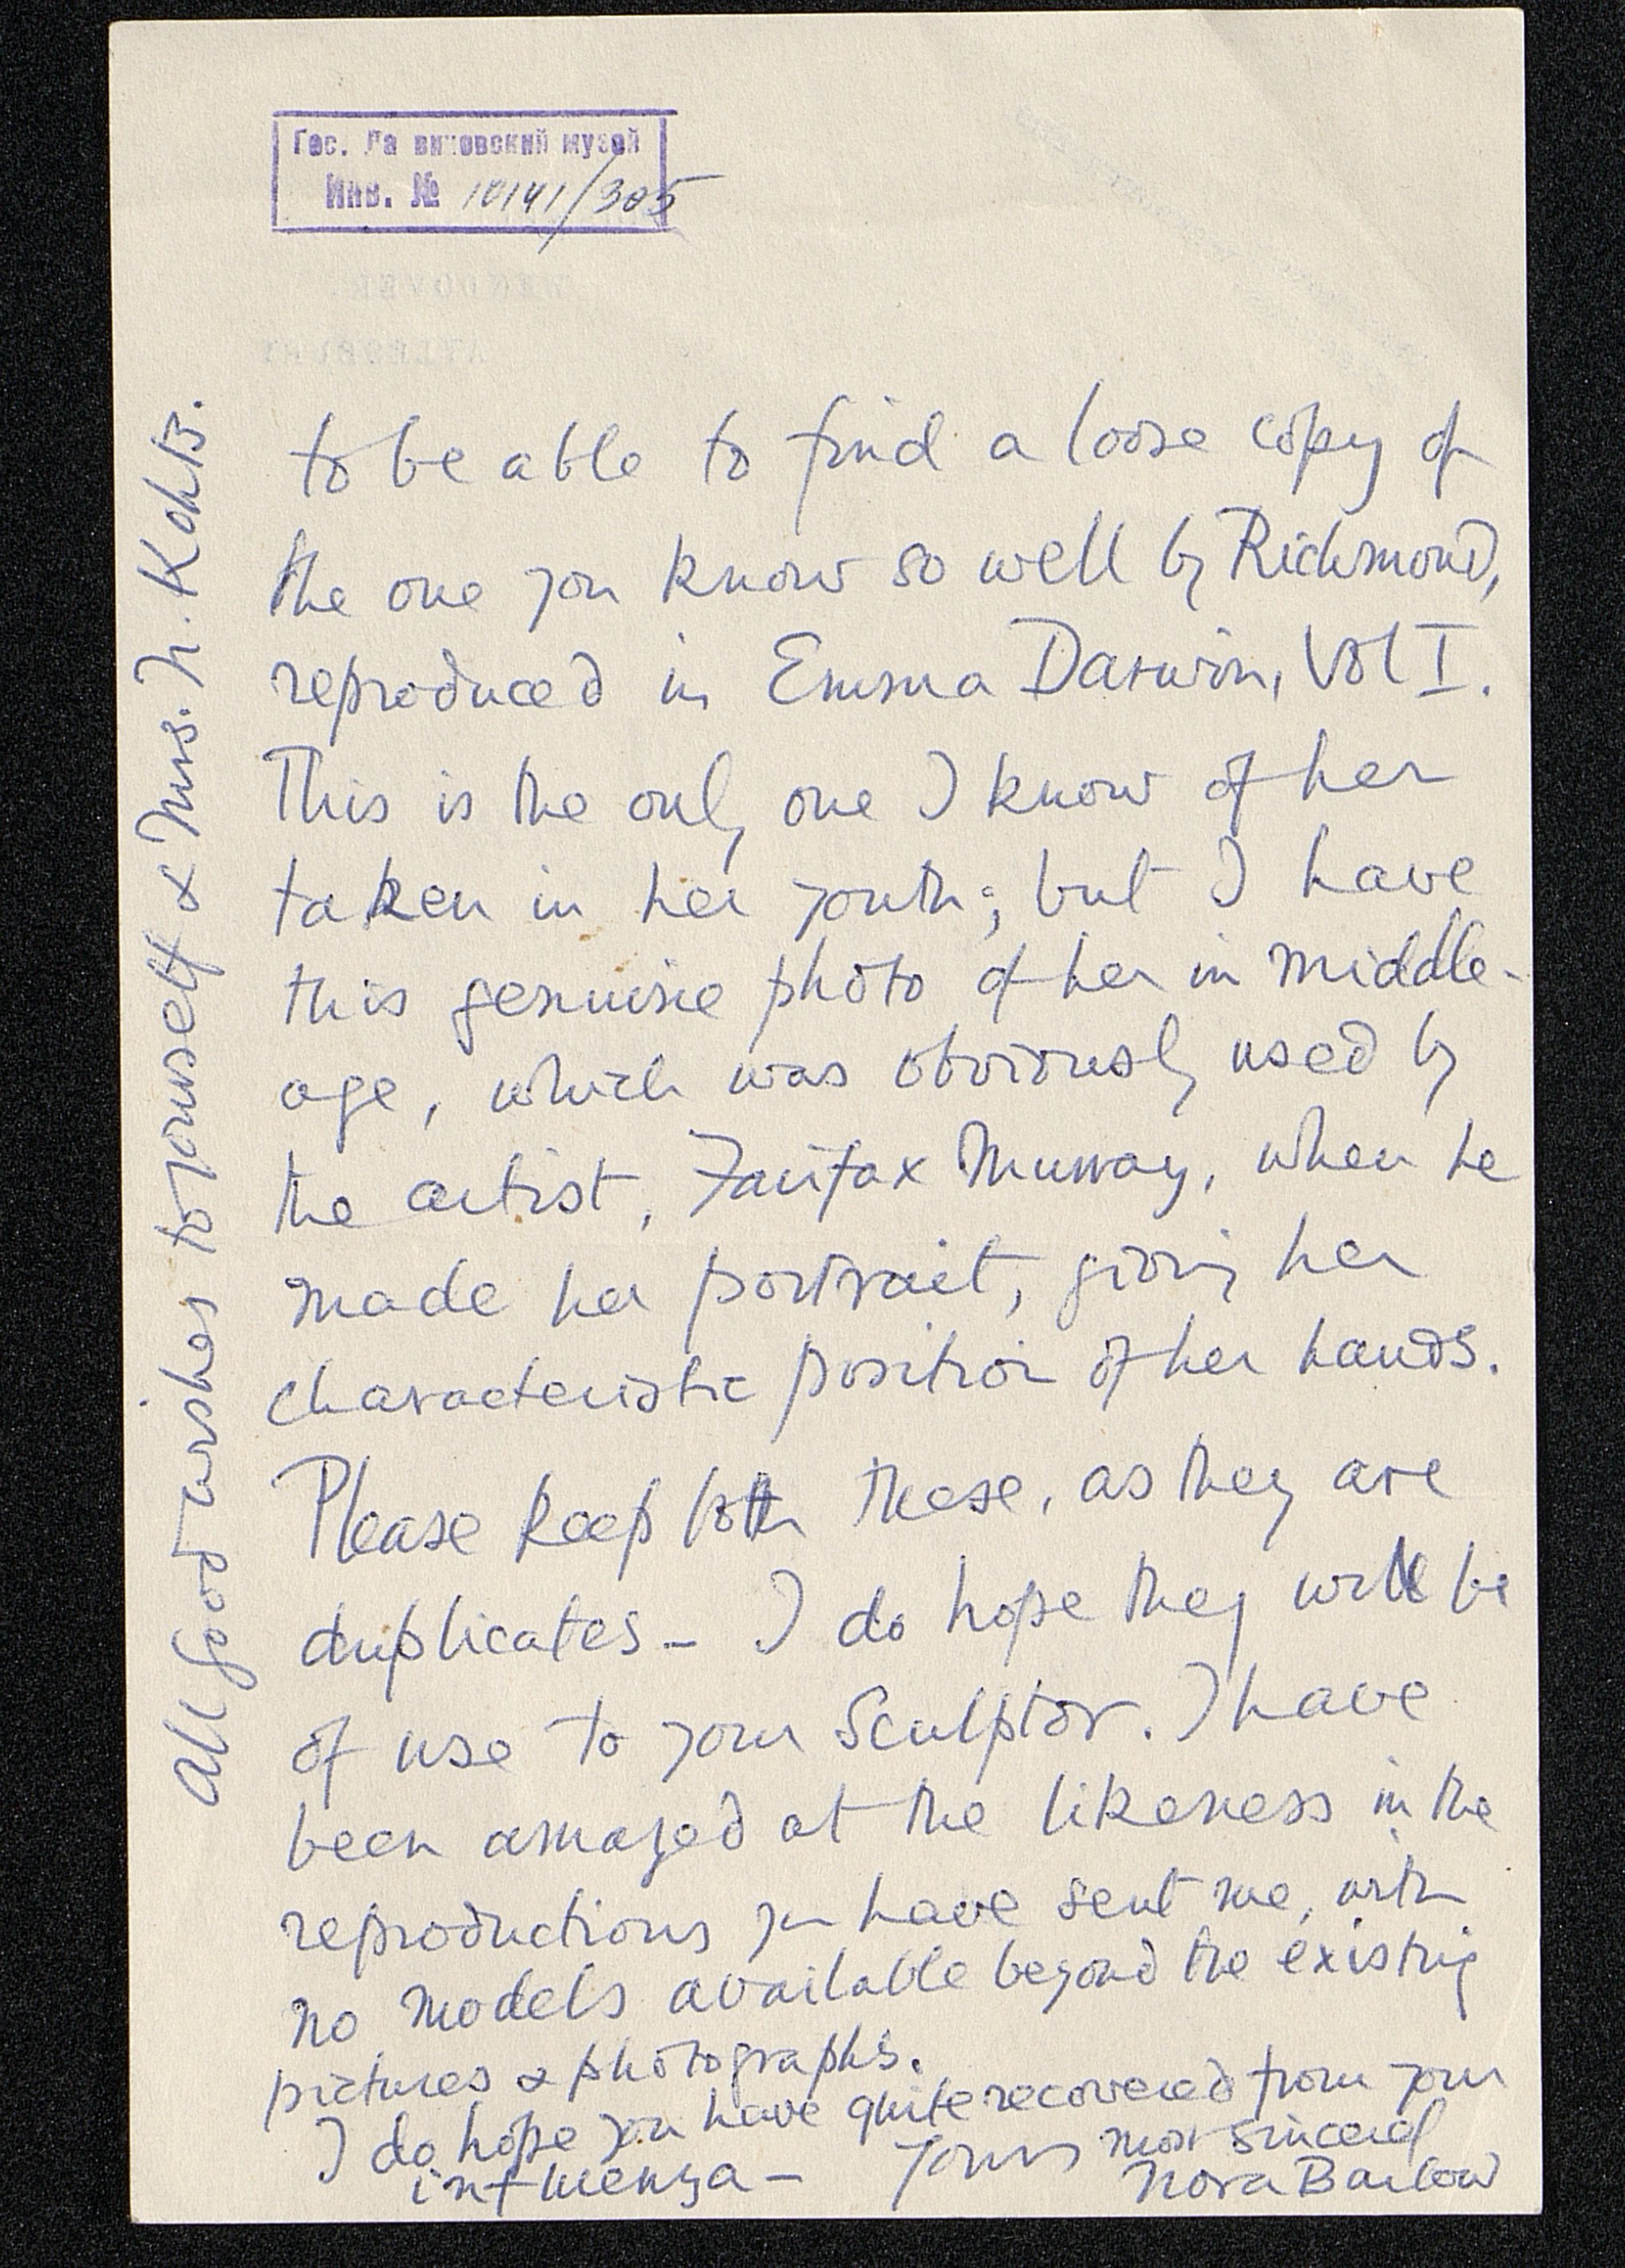 Гос. Да виновский музей
Инв. № 10141/305
to be able to find a loose copy of
the one you know so well by Richmond,
reproduced in Emma Darwin, Vol I.
This is the only one I know of her
taken in her youth; but I have
this genuine photo of her in middle-
age, which was obviously used by
the artist, Fairfax Murray, when he
made her portrait, giving her
characteristic position of her hands.
Please keep both these, as they are
duplicates - I do hope they will be
of use to your Sculptor. I have
been amazed at the likeness in the
reproductions you have sent me, with
no models available beyond the existing
pictures & photographs.
I do hope you have quite recovered from your
influenza - Yours most sincerely
Nora Barlow
All good wishes to yourself & Mrs. N. Kohts.